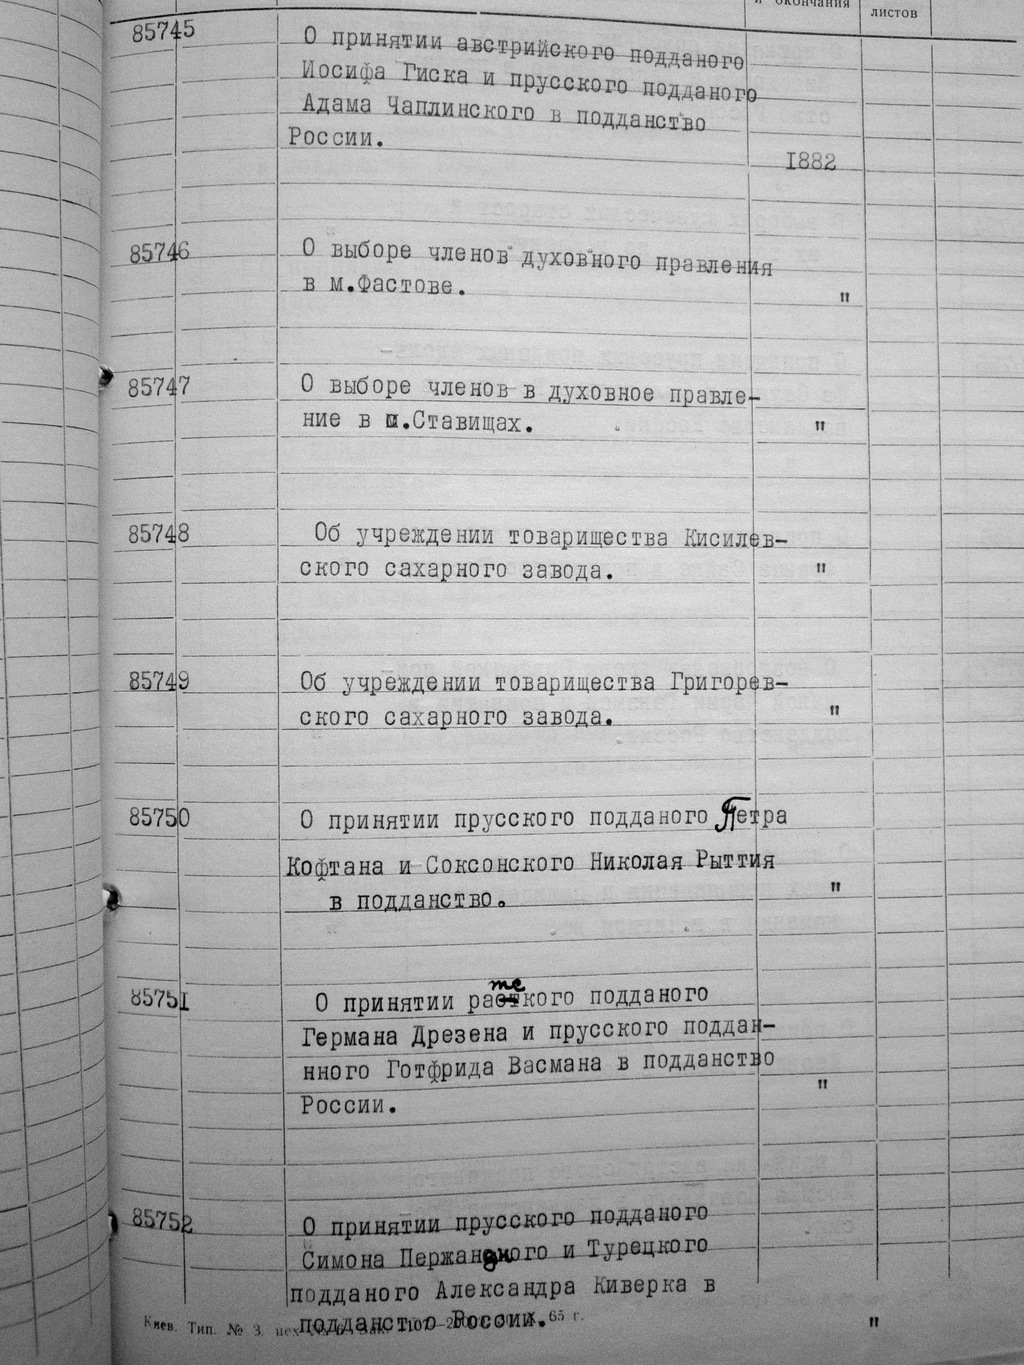 и окончания
листов
85745
О принятии австрийского подданого
Иосифа Гиска и прусского подданого
Адама Чаплинского в подданство
России.
1882
85746
О выборе членов духовного правления
в м.Фастове.
"
85747
О выборе членов в духовное правле-
ние в м.Ставищах.
"
85748
Об учреждении товарищества Кисилев-
ского сахарного завода.
"
85749
Об учреждении товарищества Григорев-
ского сахарного завода.
"
85750
О принятии прусского подданого Петра
Кофтана и Соксонского Николая Рыттия
в подданство.
"
85751
О принятии подданого
Германа Дрезена и прусского поддан-
нного Готфрида Васмана в подданство
России.
"
85752
О принятии прусского подданого
Симона и Турецкого
подданого Александра Киверка в
подданство России.
"
Киев. Тип. № 3. 65 г.